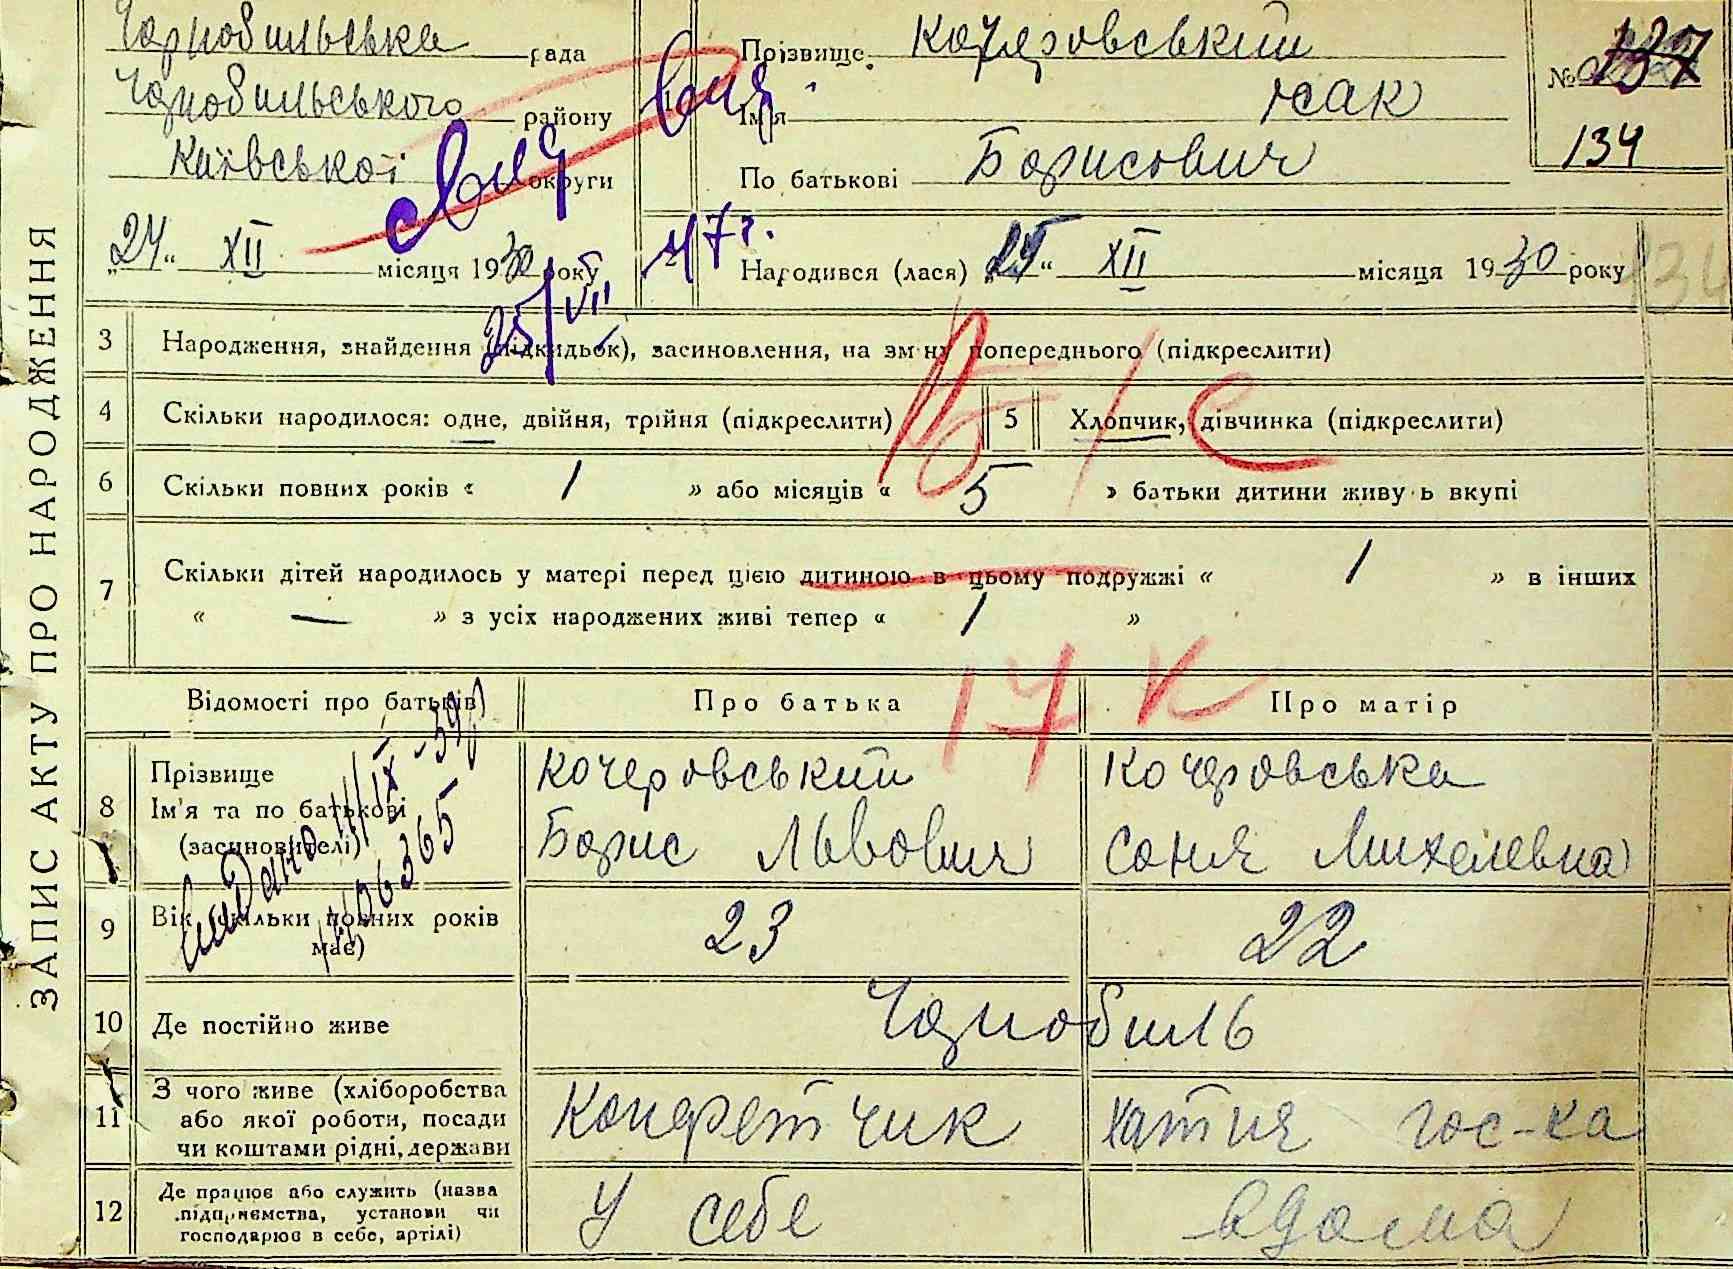 Чорнобильська рада
Чорнобильського району
Київської округи
„24“ XII місяця 1930 року
Прізвище Кочеровський
Ім'я Ісак
По батькові Борисович
№ 137
134
2 Народився (лася) „25“ XII місяця 1930 року
47 г.
25/VII
134
ЗАПИС АКТУ ПРО НАРОДЖЕННЯ
3 Народження, знайдення (підкидьок), засиновлення, на зміну попереднього (підкреслити)
4 Скільки народилося: одне, двійня, трійня (підкреслити) 5 Хлопчик, дівчинка (підкреслити)
6 Скільки повних років « 1 » або місяців « 5 » батьки дитини живуть вкупі
7 Скільки дітей народилось у матері перед цією дитиною в цьому подружжі « 1 » в інших
« — » з усіх народжених живі тепер « 1 »
17 К
Відомості про батьків Про батька Про матір
8 Прізвище
Ім'я та по батькові
(засиновителі)
Кочеровський
Борис Львович
Кочеровська
Соня Михелевна
9 Вік (скільки повних років
має)
23 22
10 Де постійно живе Чорнобиль
11 З чого живе (хліборобства
або якої роботи, посади
чи коштами рідні, держави
Конфетчик хатня гос-ка
12 Де працює або служить (назва
підприємства, установи чи
господарює в себе, артілі)
У себе вдома